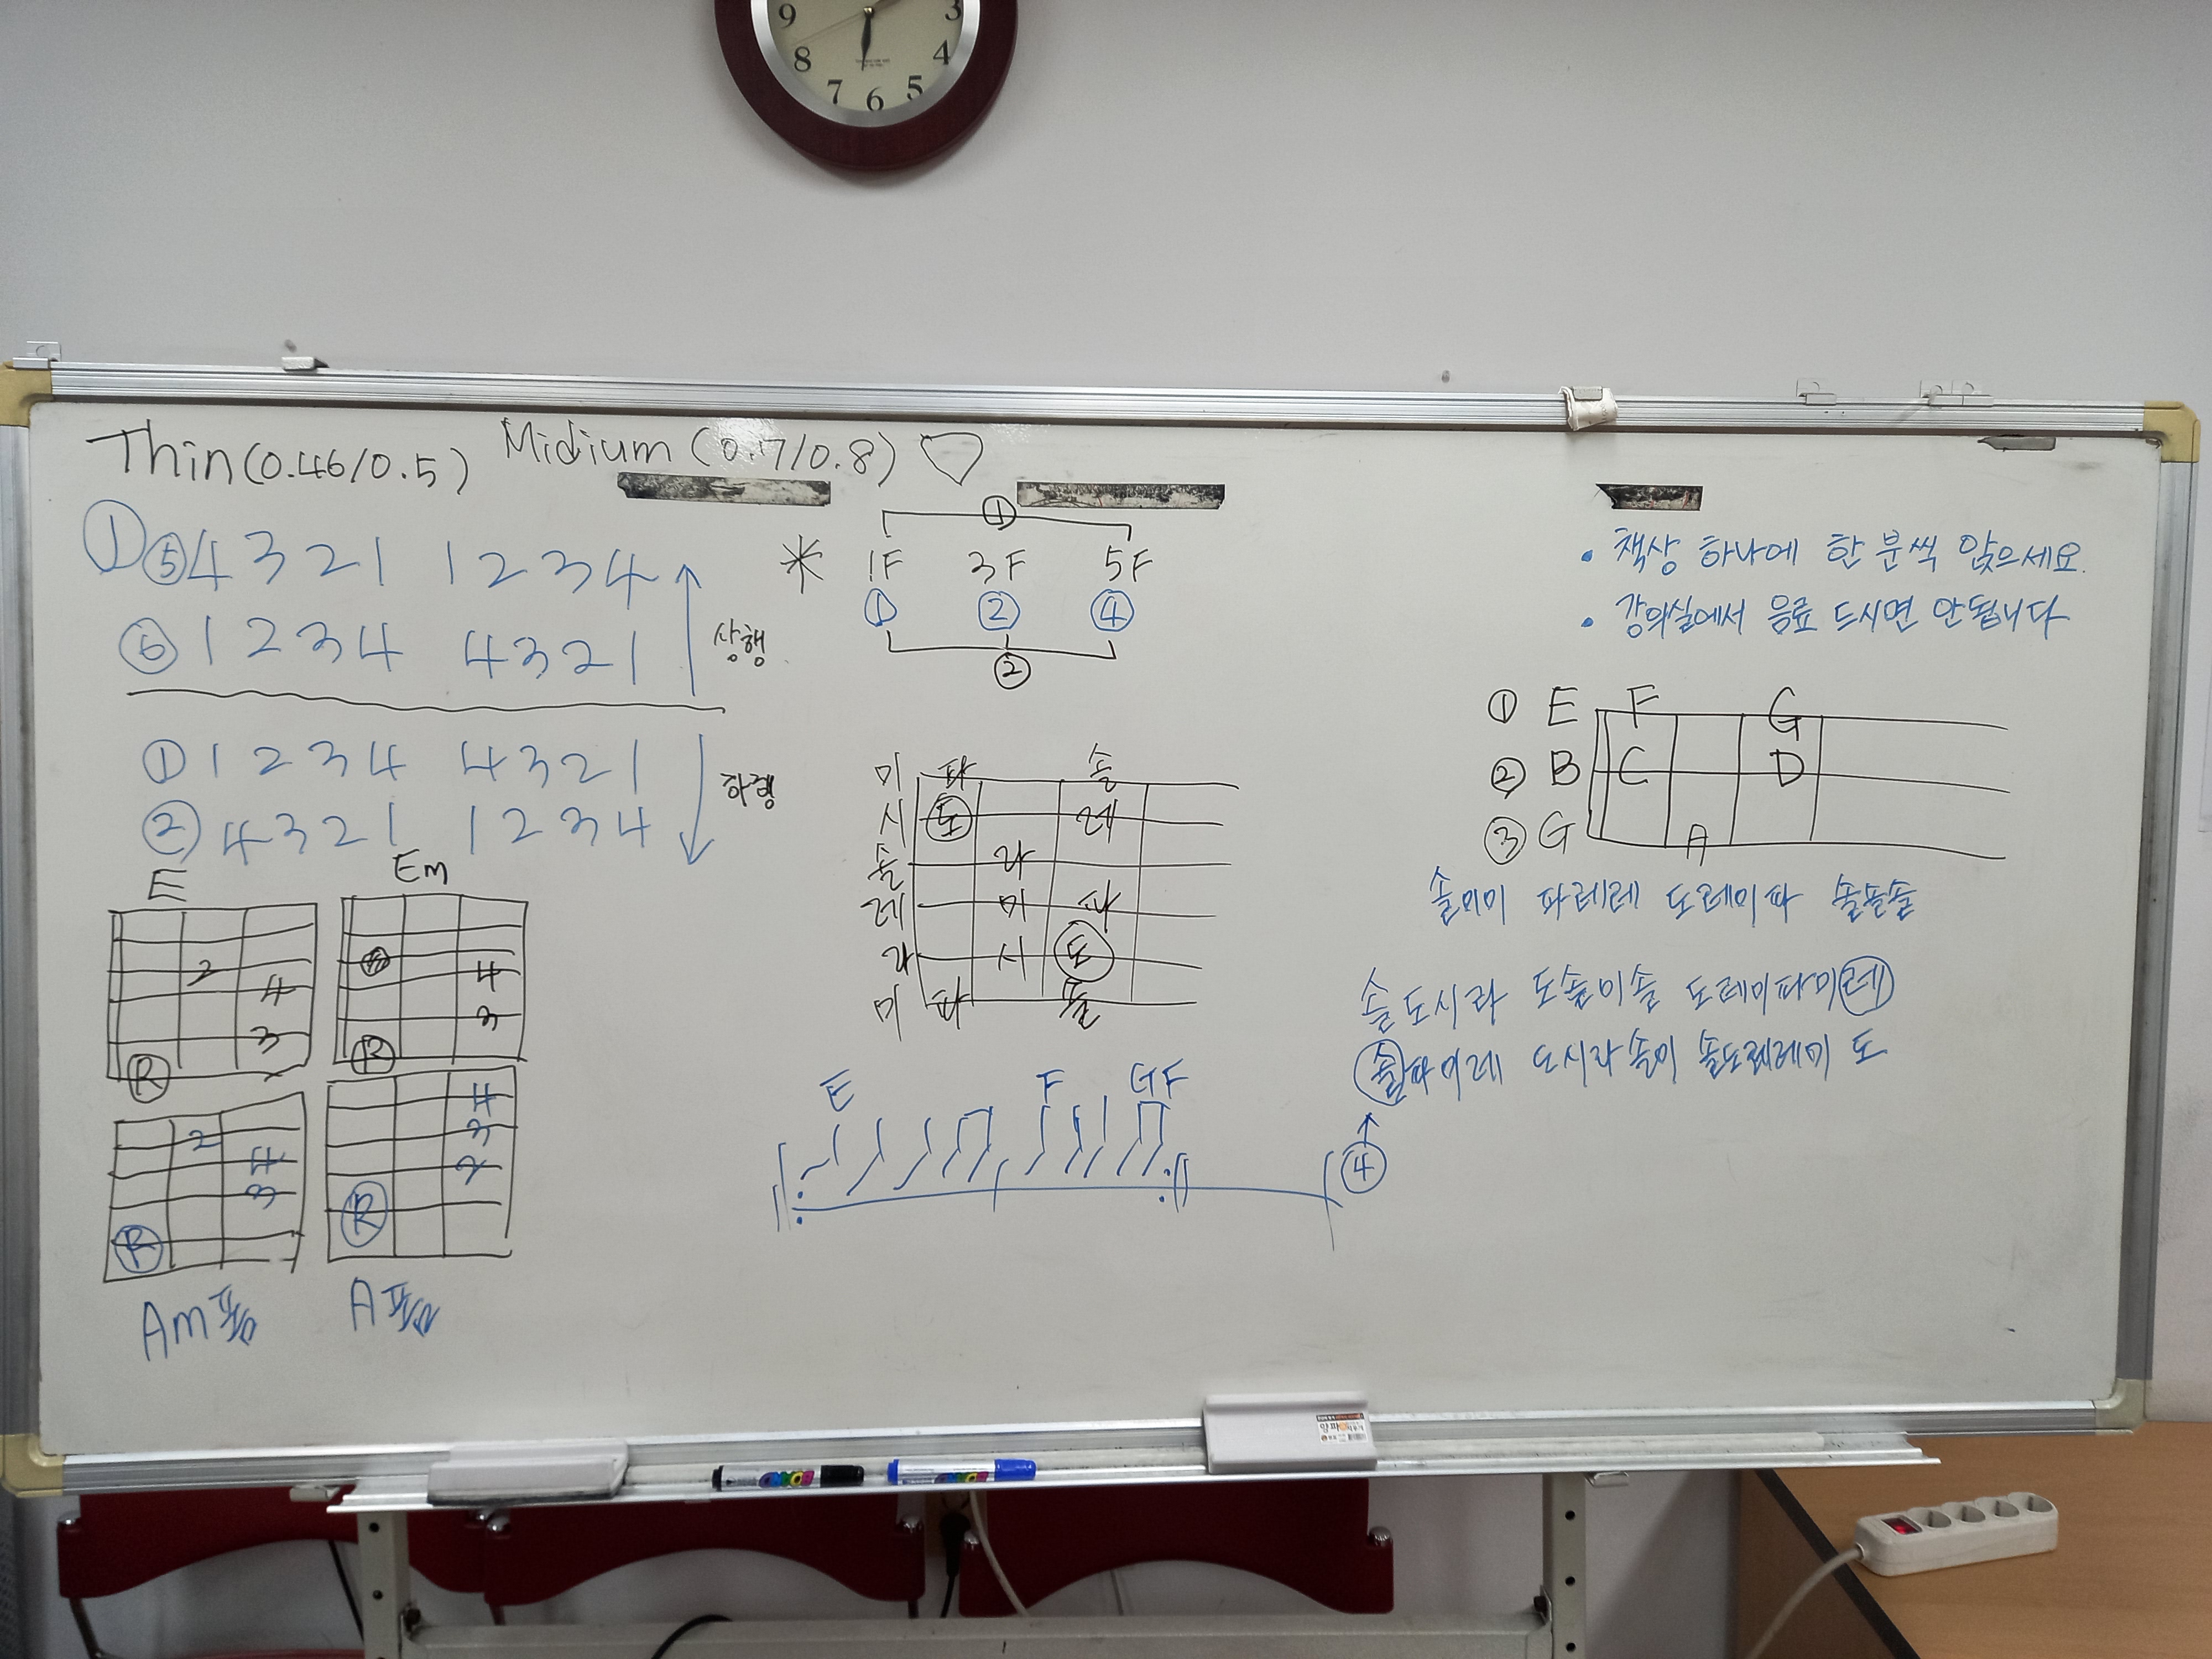 9 3
8 4
7 6 5
Thin(0.46/0.5) Midium(0.7/0.8)
① ⑤ 4 3 2 1 1 2 3 4
⑥ 1 2 3 4 4 3 2 1
상행
① 1 2 3 4 4 3 2 1
② 4 3 2 1 1 2 3 4
하행
E Em
2
4 4
3 3
R R
2 4
4 3
3 2
R R
Am폼 A폼
①
* 1F 3F 5F
① ② ④
②
미 파 솔
시 도 레
솔 라
레 미 파
라 시 도
미 파 솔
E F G F
• 책상 하나에 한 분씩 앉으세요.
• 강의실에서 음료 드시면 안됩니다
① E F G
② B C D
③ G A
솔미미 파레레 도레미파 솔솔솔
솔도시라 도솔미솔 도레미파미레
솔파미레 도시라솔미 솔도레레미 도
④